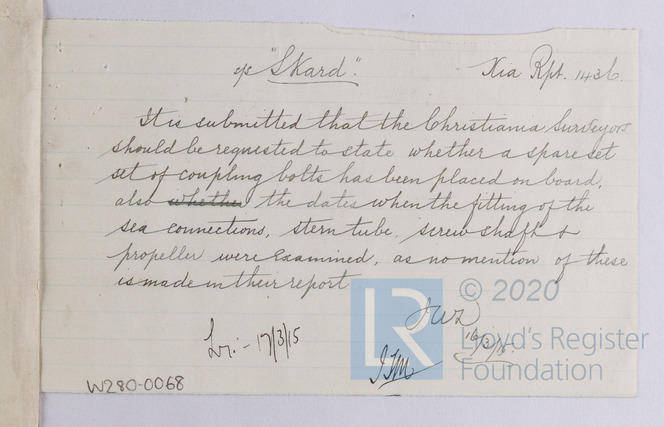 s/s "Skard". Xia Rpt. 1436.
It is submitted that the Christiania Surveyors
should be requested to state whether a spare set
set of coupling bolts has been placed on board,
also whether the dates when the fitting of the
sea connections, stern tube, screw shaft &
propeller were examined, as no mention of these
is made in their report
16/3/15
Lr:- 17/3/15
W280-0068
LR
© 2020
Lloyd's Register
Foundation